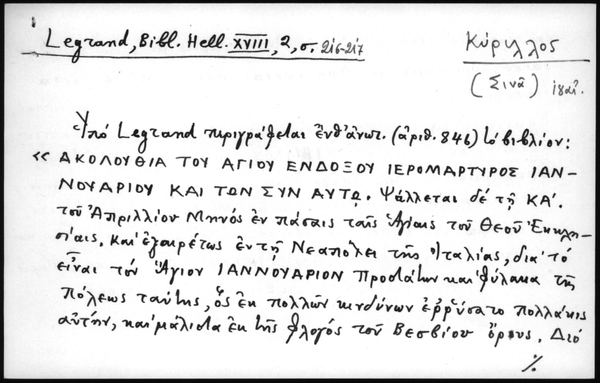 Legrand, Bibl. Hell. XVIII, 2, σ. 216-217
Κύριλλος
(Σινᾶ)
Ὑπὸ Legrand περιγράφεται ἐνθ' ἀνωτ. (ἀριθ. 846) τὸ βιβλίον:
« ΑΚΟΛΟΥΘΙΑ ΤΟΥ ΑΓΙΟΥ ΕΝΔΟΞΟΥ ΙΕΡΟΜΑΡΤΥΡΟΣ ΙΑΝ-
ΝΟΥΑΡΙΟΥ ΚΑΙ ΤΩΝ ΣΥΝ ΑΥΤῼ. Ψάλλεται δὲ τῇ ΚΑ΄.
τοῦ Ἀπριλλίου Μηνός ἐν πάσαις ταῖς Ἁγίαις τοῦ Θεοῦ Ἐκκλη-
σίαις, καὶ ἐξαιρέτως ἐν τῇ Νεαπόλει τῆς Ἰταλίας, διὰ τὸ
εἶναι τὸν Ἅγιον ΙΑΝΝΟΥΑΡΙΟΝ Προστάτην καὶ φύλακα τῆς
Πόλεως ταύτης, ὅς ἐκ πολλῶν κινδύνων ἐῤῥύσατο πολλάκις
αὐτήν, καὶ μάλιστα ἐκ τῆς φλογός τοῦ Βεσβίου ὄρους. Διό
./.